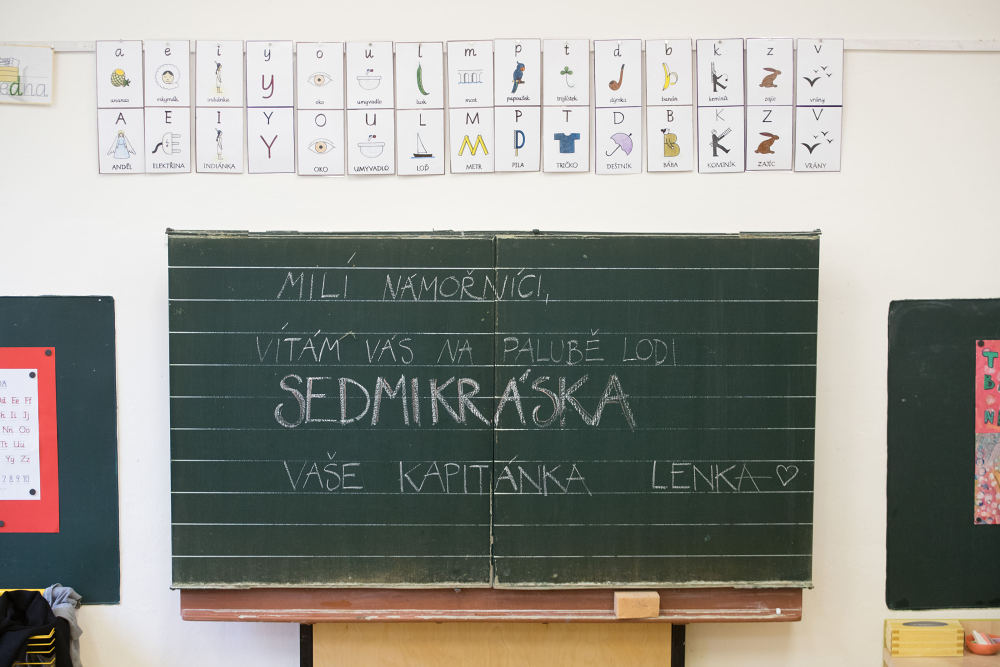 a e i y o u l m p t d b k z v
ananas eskymák indiánka oko umyvadlo lusk most papoušek trojlístek dýmka banán kominík zajíc vrány
A E I Y O U L M P T D B K Z V
ANDĚL ELEKTŘINA INDIÁNKA OKO UMYVADLO LOĎ METR PILA TRIČKO DEŠTNÍK BÁBA KOMINÍK ZAJÍC VRÁNY
MILÍ NÁMOŘNÍCI,
VÍTÁM VÁS NA PALUBĚ LODI
SEDMIKRÁSKA
VAŠE KAPITÁNKA LENKA
Ee Ff
Ii Jj
Nn Oo
Tt Uu
Yy Zz
7 8 9 10